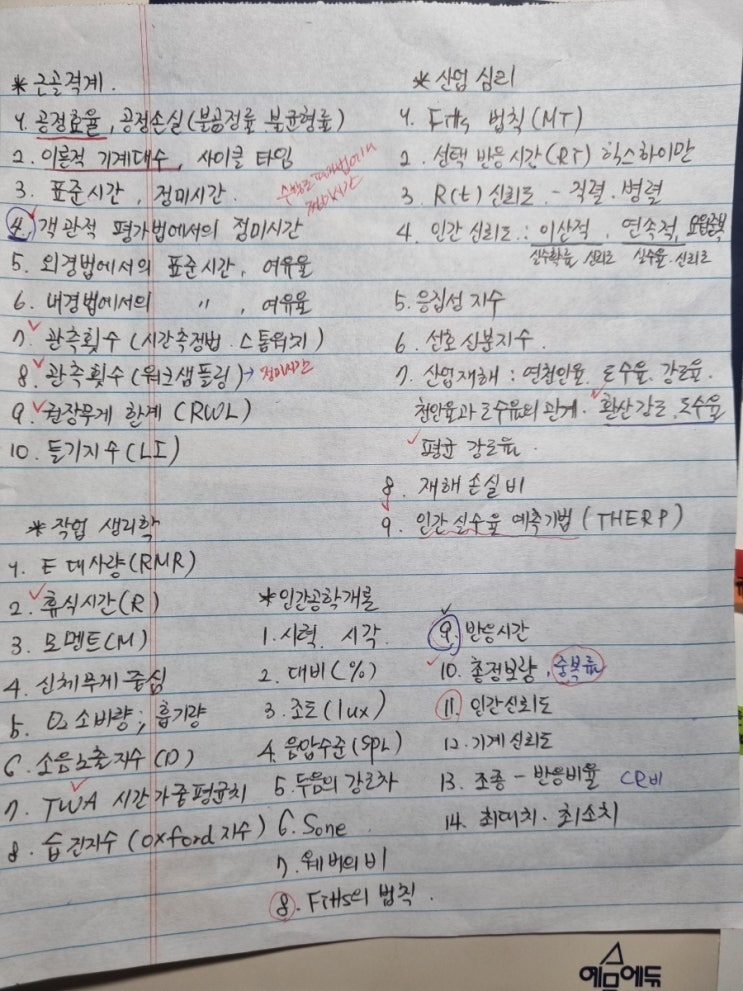 * 근골격계.
1. 공정효율, 공정손실(불공정률 불균형률)
2. 이론적 기계대수, 사이클 타임
3. 표준시간, 정미시간.
정미시간
4. 객관적 평가법에서의 정미시간
5. 외경법에서의 표준시간, 여유율
6. 내경법에서의 〃, 여유율
7. 관측횟수 (시간측정법. 스톱워치)
8. 관측횟수 (워크샘플링) → 정미시간
9. 권장무게 한계 (RWL)
10. 들기지수(LI)
* 산업 심리
1. Fitts 법칙(MT)
2. 선택 반응시간(RT) 힉스하이만
3. R(t) 신뢰도 - 직렬. 병렬
4. 인간 신뢰도 : 이산적, 연속적,
실수확률 신뢰도 실수율. 신뢰도
5. 응집성 지수
6. 선호 신분지수.
7. 산업재해 : 연천인율. 도수율. 강도율.
천인율과 도수율의 관계. 환산강도, 도수율
평균 강도율.
8. 재해 손실비
9. 인간 실수율 예측기법 (THERP)
* 작업 생리학
1. E 대사량(RMR)
2. 휴식시간(R)
3. 모멘트(M)
4. 신체무게 중심
5. O₂ 소비량; 흡기량
6. 소음노출지수(D)
7. TWA 시간가중평균치
8. 습건지수 (oxford 지수)
* 인간공학개론
1. 시력. 시각.
2. 대비(%)
3. 조도(lux)
4. 음압수준(SPL)
5. 두음의 강도차
6. Sone
7. 웨버의 비
8. Fitts의 법칙.
9. 반응시간
10. 총정보량, 중복률
11. 인간신뢰도
12. 기계신뢰도
13. 조종 - 반응비율 CR비
14. 최대치. 최소치
예문에듀